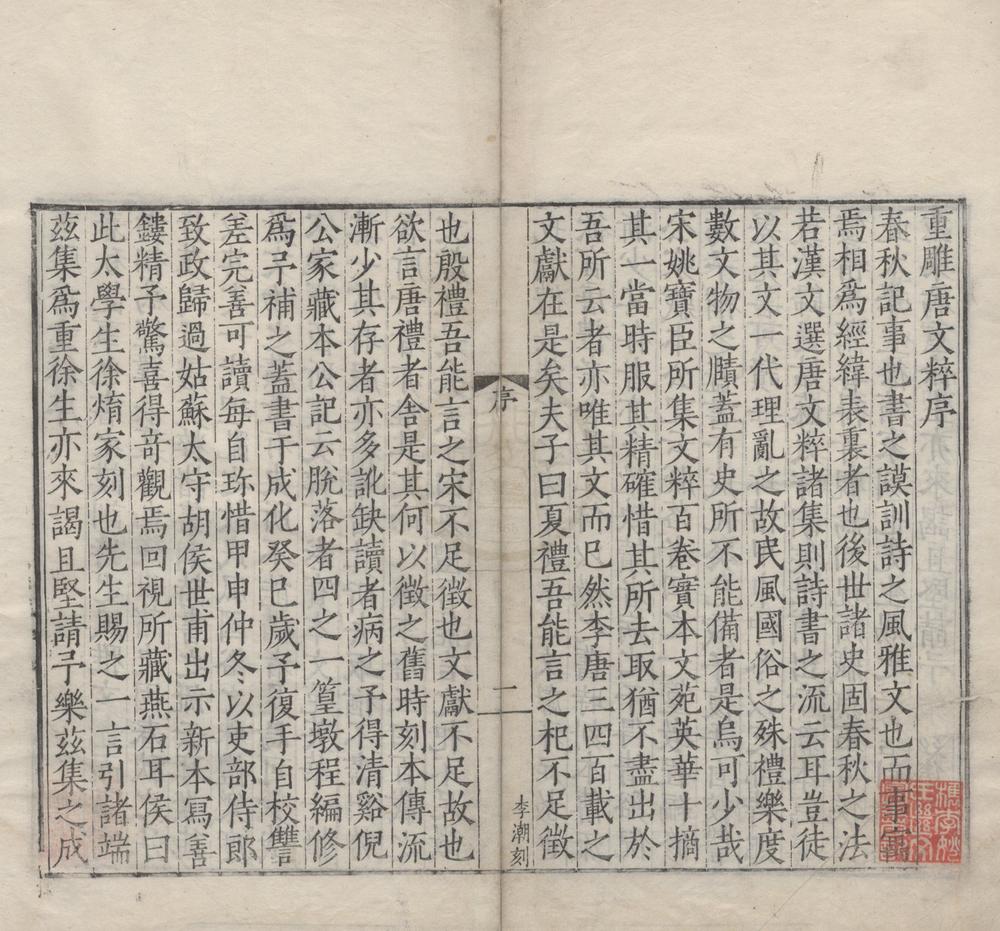 重雕唐文粹序
春秋記事也書之謨訓詩之風雅文也而事寓
焉相爲經緯表裏者也後世諸史固春秋之法
若漢文選唐文粹諸集則詩書之流云耳豈徒
以其文一代理亂之故民風國俗之殊禮樂度
數文物之賾蓋有史所不能備者是烏可少哉
宋姚寶臣所集文粹百卷實本文苑英華十摘
其一當時服其精確惜其所去取猶不盡出於
吾所云者亦唯其文而已然李唐三四百載之
文獻在是矣夫子曰夏禮吾能言之杞不足徵
序
一
李潮刻
也殷禮吾能言之宋不足徵也文獻不足故也
欲言唐禮者舍是其何以徵之舊時刻本傳流
漸少其存者亦多訛缺讀者病之予得清谿倪
公家藏本公記云脫落者四之一篁墩程編修
爲予補之蓋書于成化癸巳歲予復手自校讐
差完善可讀每自珎惜甲申仲冬以吏部侍郎
致政歸過姑蘇太守胡侯世甫出示新本寫善
鏤精予驚喜得竒觀焉回視所藏燕石耳侯曰
此太學生徐焴家刻也先生賜之一言引諸端
茲集爲重徐生亦來謁且堅請予樂茲集之成